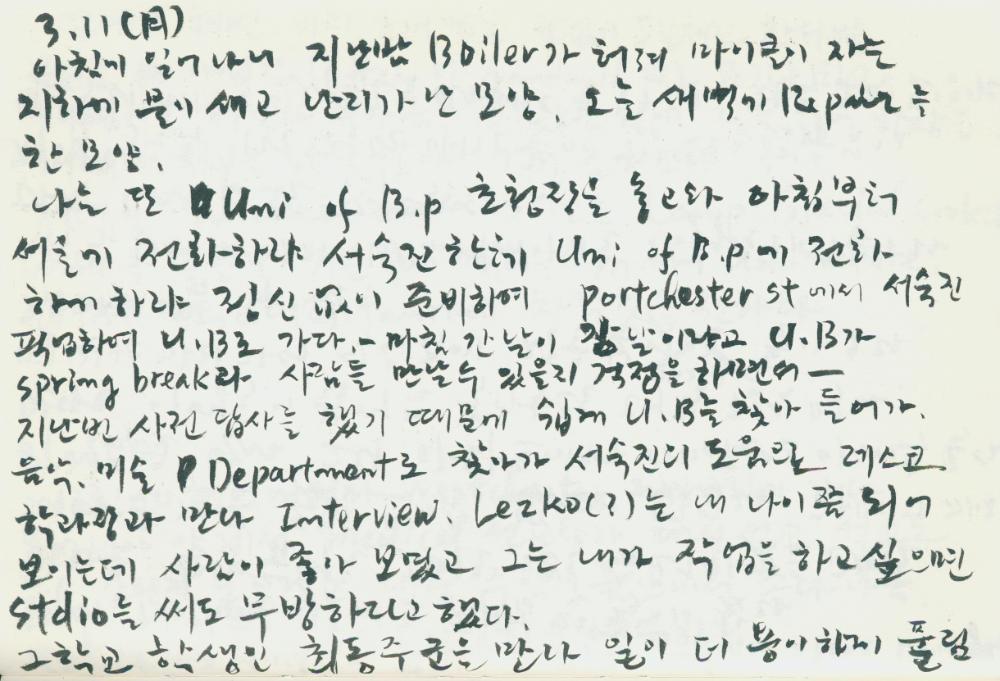 3.11(月)
아침에 일어나니 지난밤 Boiler가 터져 마이클이 자는
지하에 물이 새고 난리가 난 모양. 오늘 새벽에 Repair는
한 모양.
나는 또 Uni of B.p 초청장을 놓고와 아침부터
서울에 전화하랴 서숙진한테 Uni of B.p에 전화
하게 하랴 정신 없이 준비하여 portchester st에서 서숙진
픽업하여 U.B로 가다.- 마침 간날이 장날이라고 U.B가
spring break라 사람들 만날수 있을지 걱정을 하면서—
지난번 사전 답사를 했기 때문에 쉽게 U.B를 찾아 들어가.
음악. 미술 Department로 찾아가 서숙진의 도움으로 레스코
학과장과 만나 Interview. Lezko(?)는 내 나이쯤 되어
보이는데 사람이 좋아 보였고 그는 내가 작업을 하고 싶으면
stdio를 써도 무방하다고 했다.
그학교 학생인 최동주군을 만나 일이 더 용이하게 풀림